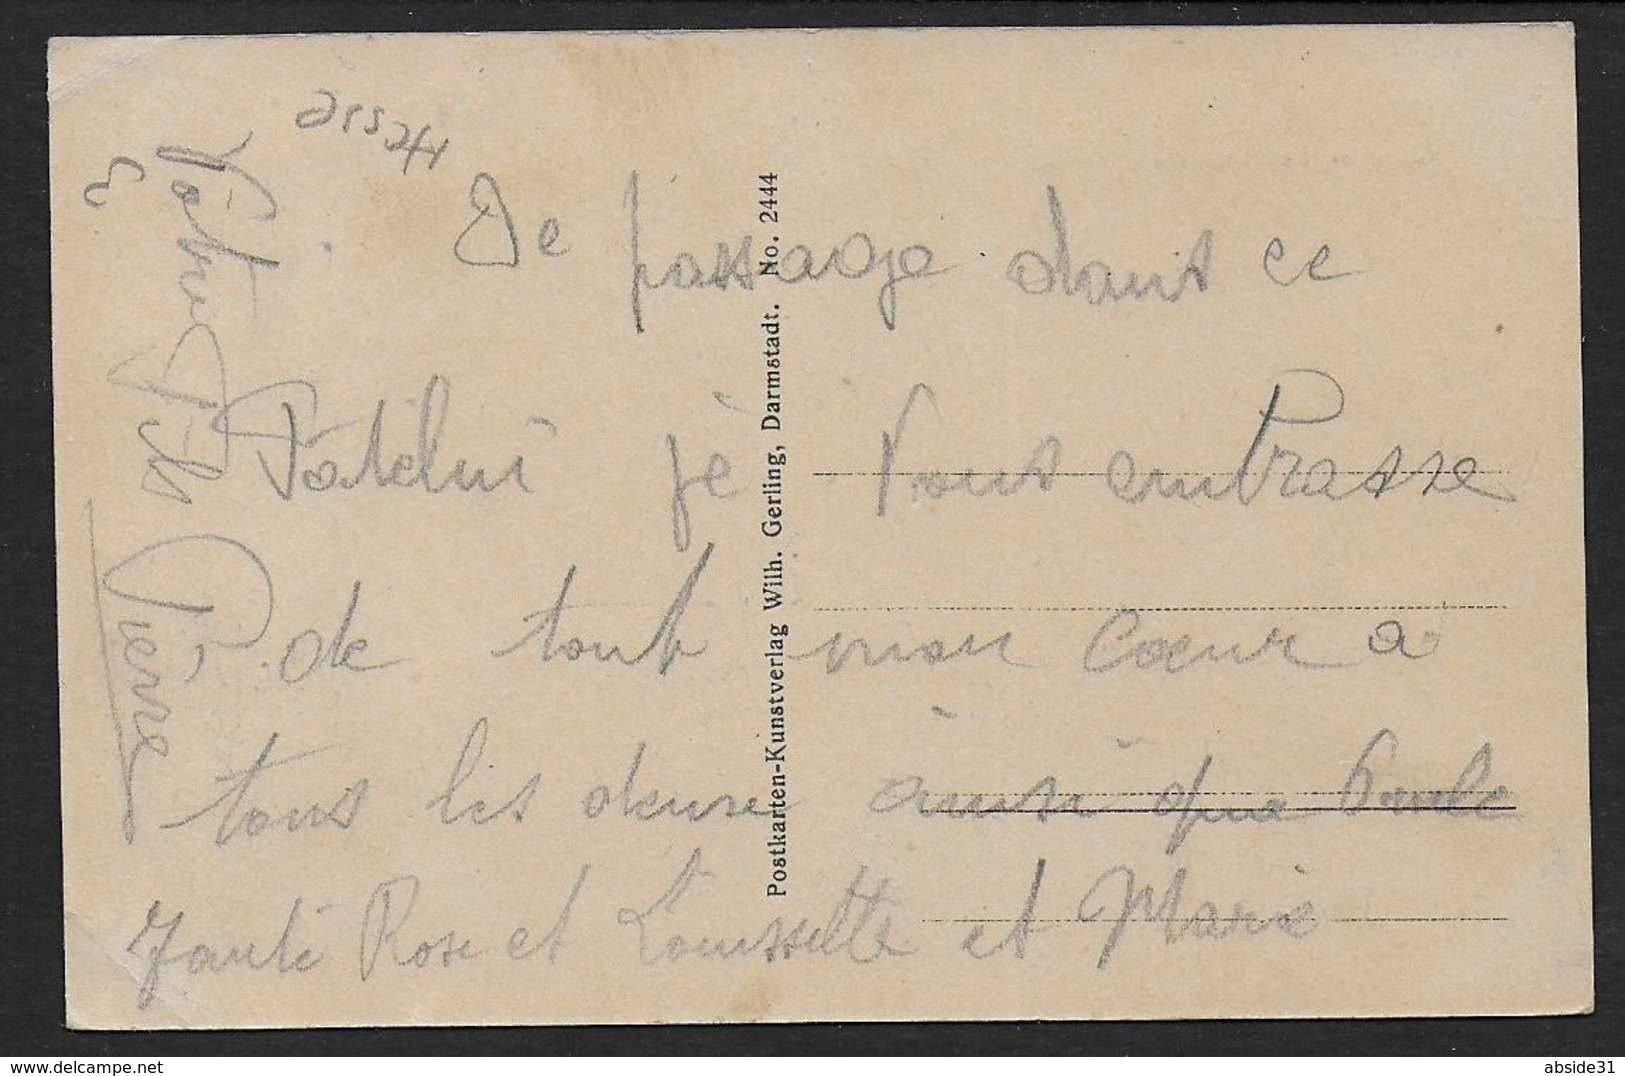 Hesse
De passage dans ce
Patelin je Vous embrasse
de tout mon Cœur a
tous les deux ainsi que Paule
Tante Rose et Louissette et Marie
Votre fils
Pierre
Postkarten-Kunstverlag Wilh. Gerling, Darmstadt. No. 2444
delcampe.net
abside31